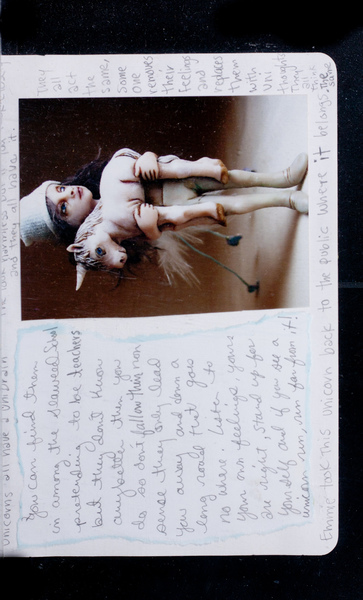 They
all
act
the
same,
Some
one
removes
their
feelings
and
replaces
them
with
uni
thoughts
They
all
think
the
same
and they all have it
unicorns all have a unibrain
You can find them
in among the Seaweed School
pretending to be teachers
but they don't know
anybetter then you
do so don't follow their non
sence they only lead
you away and down a
long road that goes
no where. Listen to
your own feelings, yours
are right, stand up for
yourself and if you see a
unicorn run, run far from it!
Emmie took this unicorn back to the public where it belongs